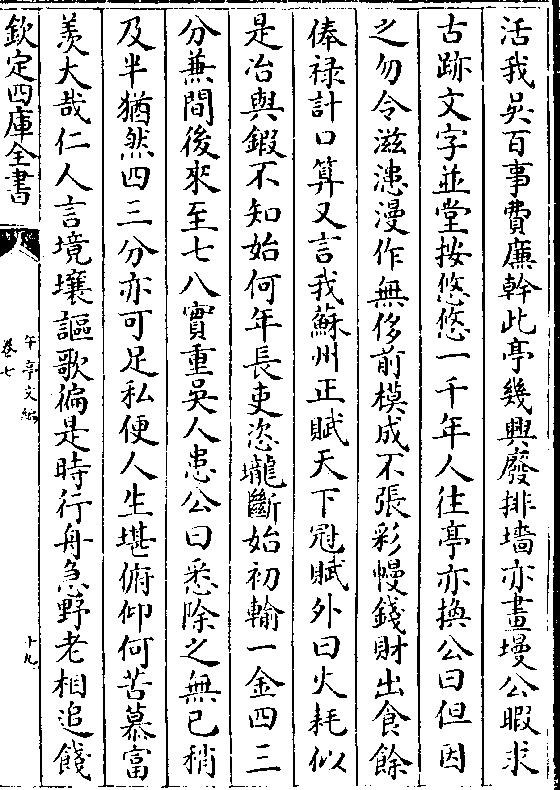 活我吳百事費廉幹此亭幾興廢排墻亦畫墁公暇求
古跡文字並堂按悠悠一千年人往亭亦換公曰但因
之勿令滋漶漫作無侈前模成不張彩幔錢財出食餘
俸禄計口算又言我蘇州正賦天下冠賦外曰火耗似
是冶與鍜不知始何年長吏恣壠斷始初輸一金四三
分兼間後來至七八實重吳人患公曰悉除之無已稍
及半猶然四三分亦可足私便人生堪俯仰何苦慕富
羡大哉仁人言境壤謳歌徧是時行舟急野老相追餞
欽定四庫全書
午亭文編
卷七
十九